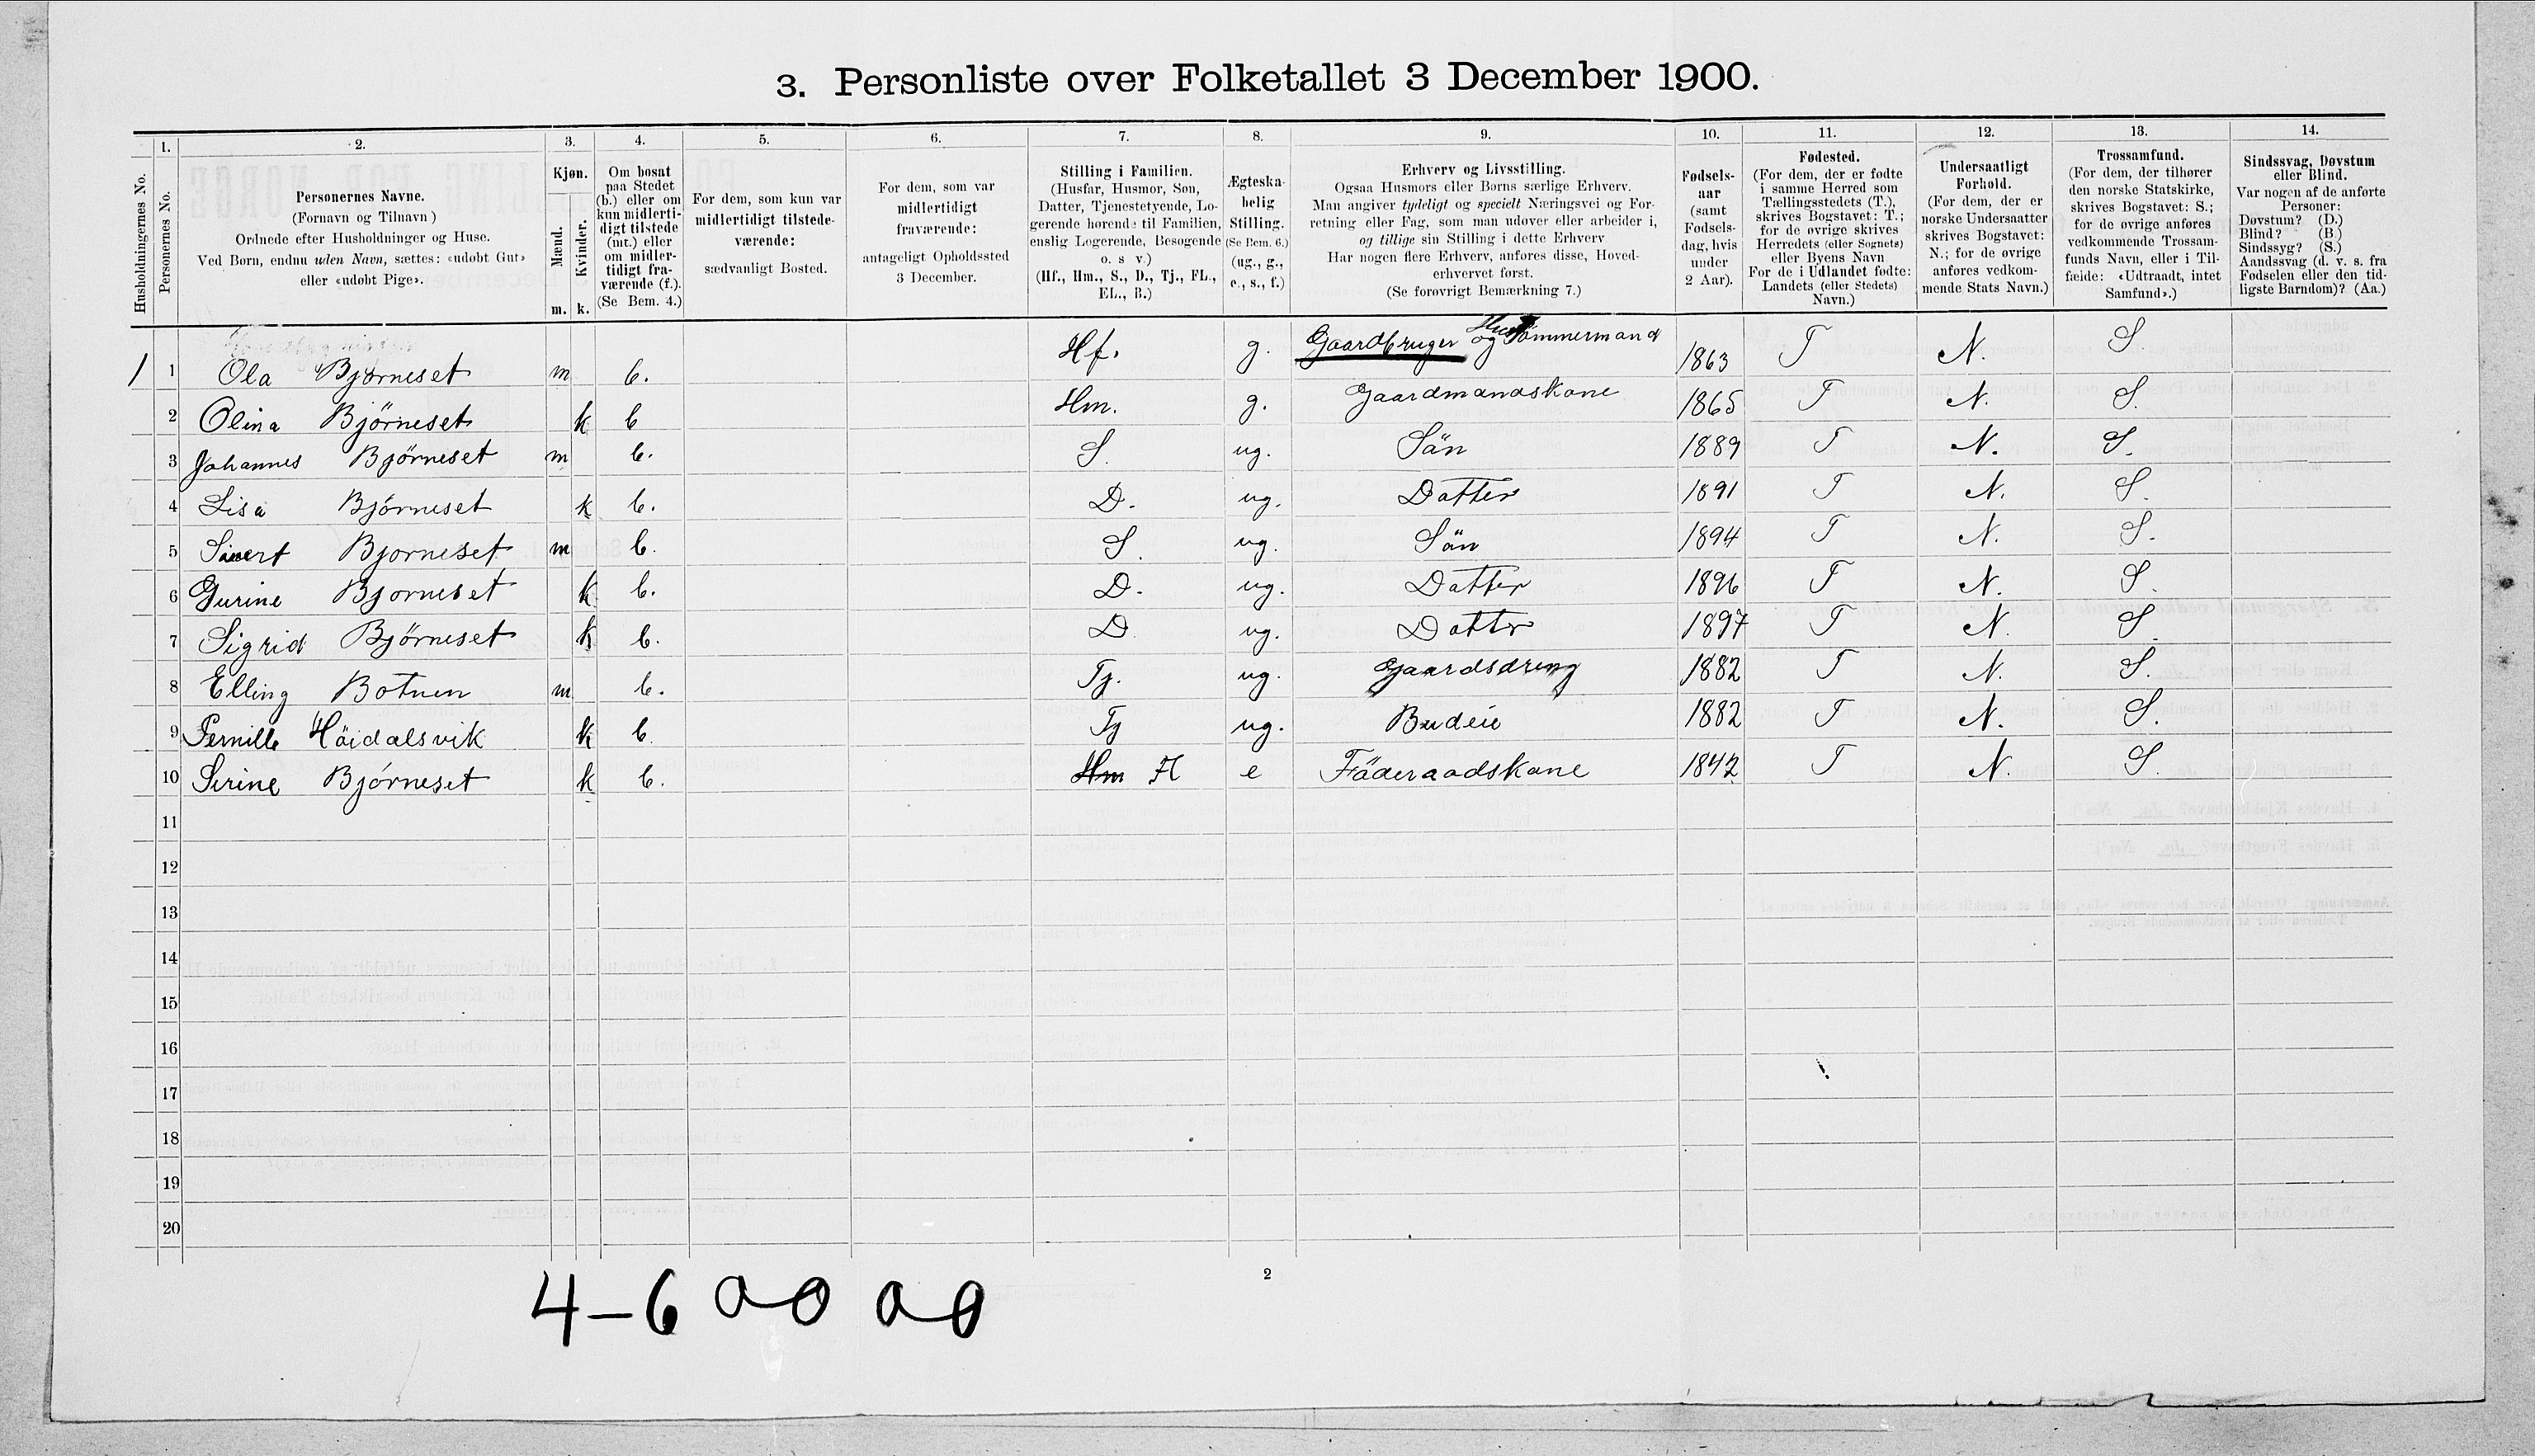 3. Personliste over Folketallet 3 December 1900.
1. 2. 3. 4. 5. 6. 7. 8. 9. 10. 11. 12. 13. 14.
Husholdningernes No.
Personernes No.
Personernes Navne.
(Fornavn og Tilnavn)
Ordnede efter Husholdninger og Huse.
Ved Børn, endnu uden Navn, sættes: «udøbt Gut»
eller «udøbt Pige».
Kjøn.
Mænd.
Kvinder.
m. k.
Om bosat
paa Stedet
(b.) eller om
kun midlerti-
digt tilstede
(mt.) eller
om midler-
tidigt fra-
værende (f.).
(Se Bem. 4.)
For dem, som kun var
midlertidigt tilstede-
værende:
sædvanligt Bosted.
For dem, som var
midlertidigt
fraværende:
antageligt Opholdssted
3 December.
Stilling i Familien.
(Husfar, Husmor, Søn,
Datter, Tjenestetyende, Lo-
gerende hørende til Familien,
enslig Logerende, Besøgende
o. s v.)
(Hf., Hm., S., D., Tj., FL.,
EL., B.)
Ægteska-
belig
Stilling.
(Se Bem. 6.)
(ug., g.,
e., s., f.)
Erhverv og Livsstilling.
Ogsaa Husmors eller Børns særlige Erhverv.
Man angiver tydeligt og specielt Næringsvei og For-
retning eller Fag, som man udøver eller arbeider i,
og tillige sin Stilling i dette Erhverv
Har nogen flere Erhverv, anføres disse, Hoved-
erhvervet først.
(Se forøvrigt Bemærkning 7.)
Fødsels-
aar
(samt
Fødsels-
dag, hvis
under
2 Aar).
Fødested.
(For dem, der er fødte
i samme Herred som
Tællingsstedets (T.),
skrives Bogstavet: T.;
for de øvrige skrives
Herredets (eller Sognets)
eller Byens Navn
For de i Udlandet fødte:
Landets (eller Stedets)
Navn.)
Undersaatligt
Forhold.
(For dem, der er
norske Undersaatter
skrives Bogstavet:
N.; for de øvrige
anføres vedkom-
mende Stats Navn.)
Trossamfund.
(For dem, der tilhører
den norske Statskirke,
skrives Bogstavet: S.;
for de øvrige anføres
vedkommende Trossam-
funds Navn, eller i Til-
fælde: «Udtraadt, intet
Samfund».)
Sindssvag, Døvstum
eller Blind.
Var nogen af de anførte
Personer:
Døvstum? (D.)
Blind? (B.)
Sindssyg? (S.)
Aandssvag (d. v. s. fra
Fødselen eller den tid-
ligste Barndom)? (Aa.)
1 1 Ola Bjørneset m b. Hf. g. Gaardbruger og Tømmermand 1863 T N. S.
2 Olina Bjørneset k b Hm. g. Gaardmandskone 1865 T N. S.
3 Johannes Bjørneset m b. S. ug. Sön 1889 T N. S.
4 Lisa Bjørneset k b. D. ug. Datter 1891 T N. S.
5 Sivert Bjorneset m b. S. ug. Sön 1894 T N. S.
6 Gurine Bjorneset k b. D. ug. Datter 1896 T N. S.
7 Sigrid Bjørneset k b. D ug. Datter 1897 T N. S.
8 Elling Botnen m b. Tj. ug. Gaardsdreng 1882 T N. S.
9 Pernille Höidalsvik k b. Tj ug. Budeie 1882 T N. S.
10 Serine Bjørneset k b. Hm Fl e Föderaadskone 1842 T N. S.
11
12
13
14
15
16
17
18
19
20
2
4-6 0-0 0-0